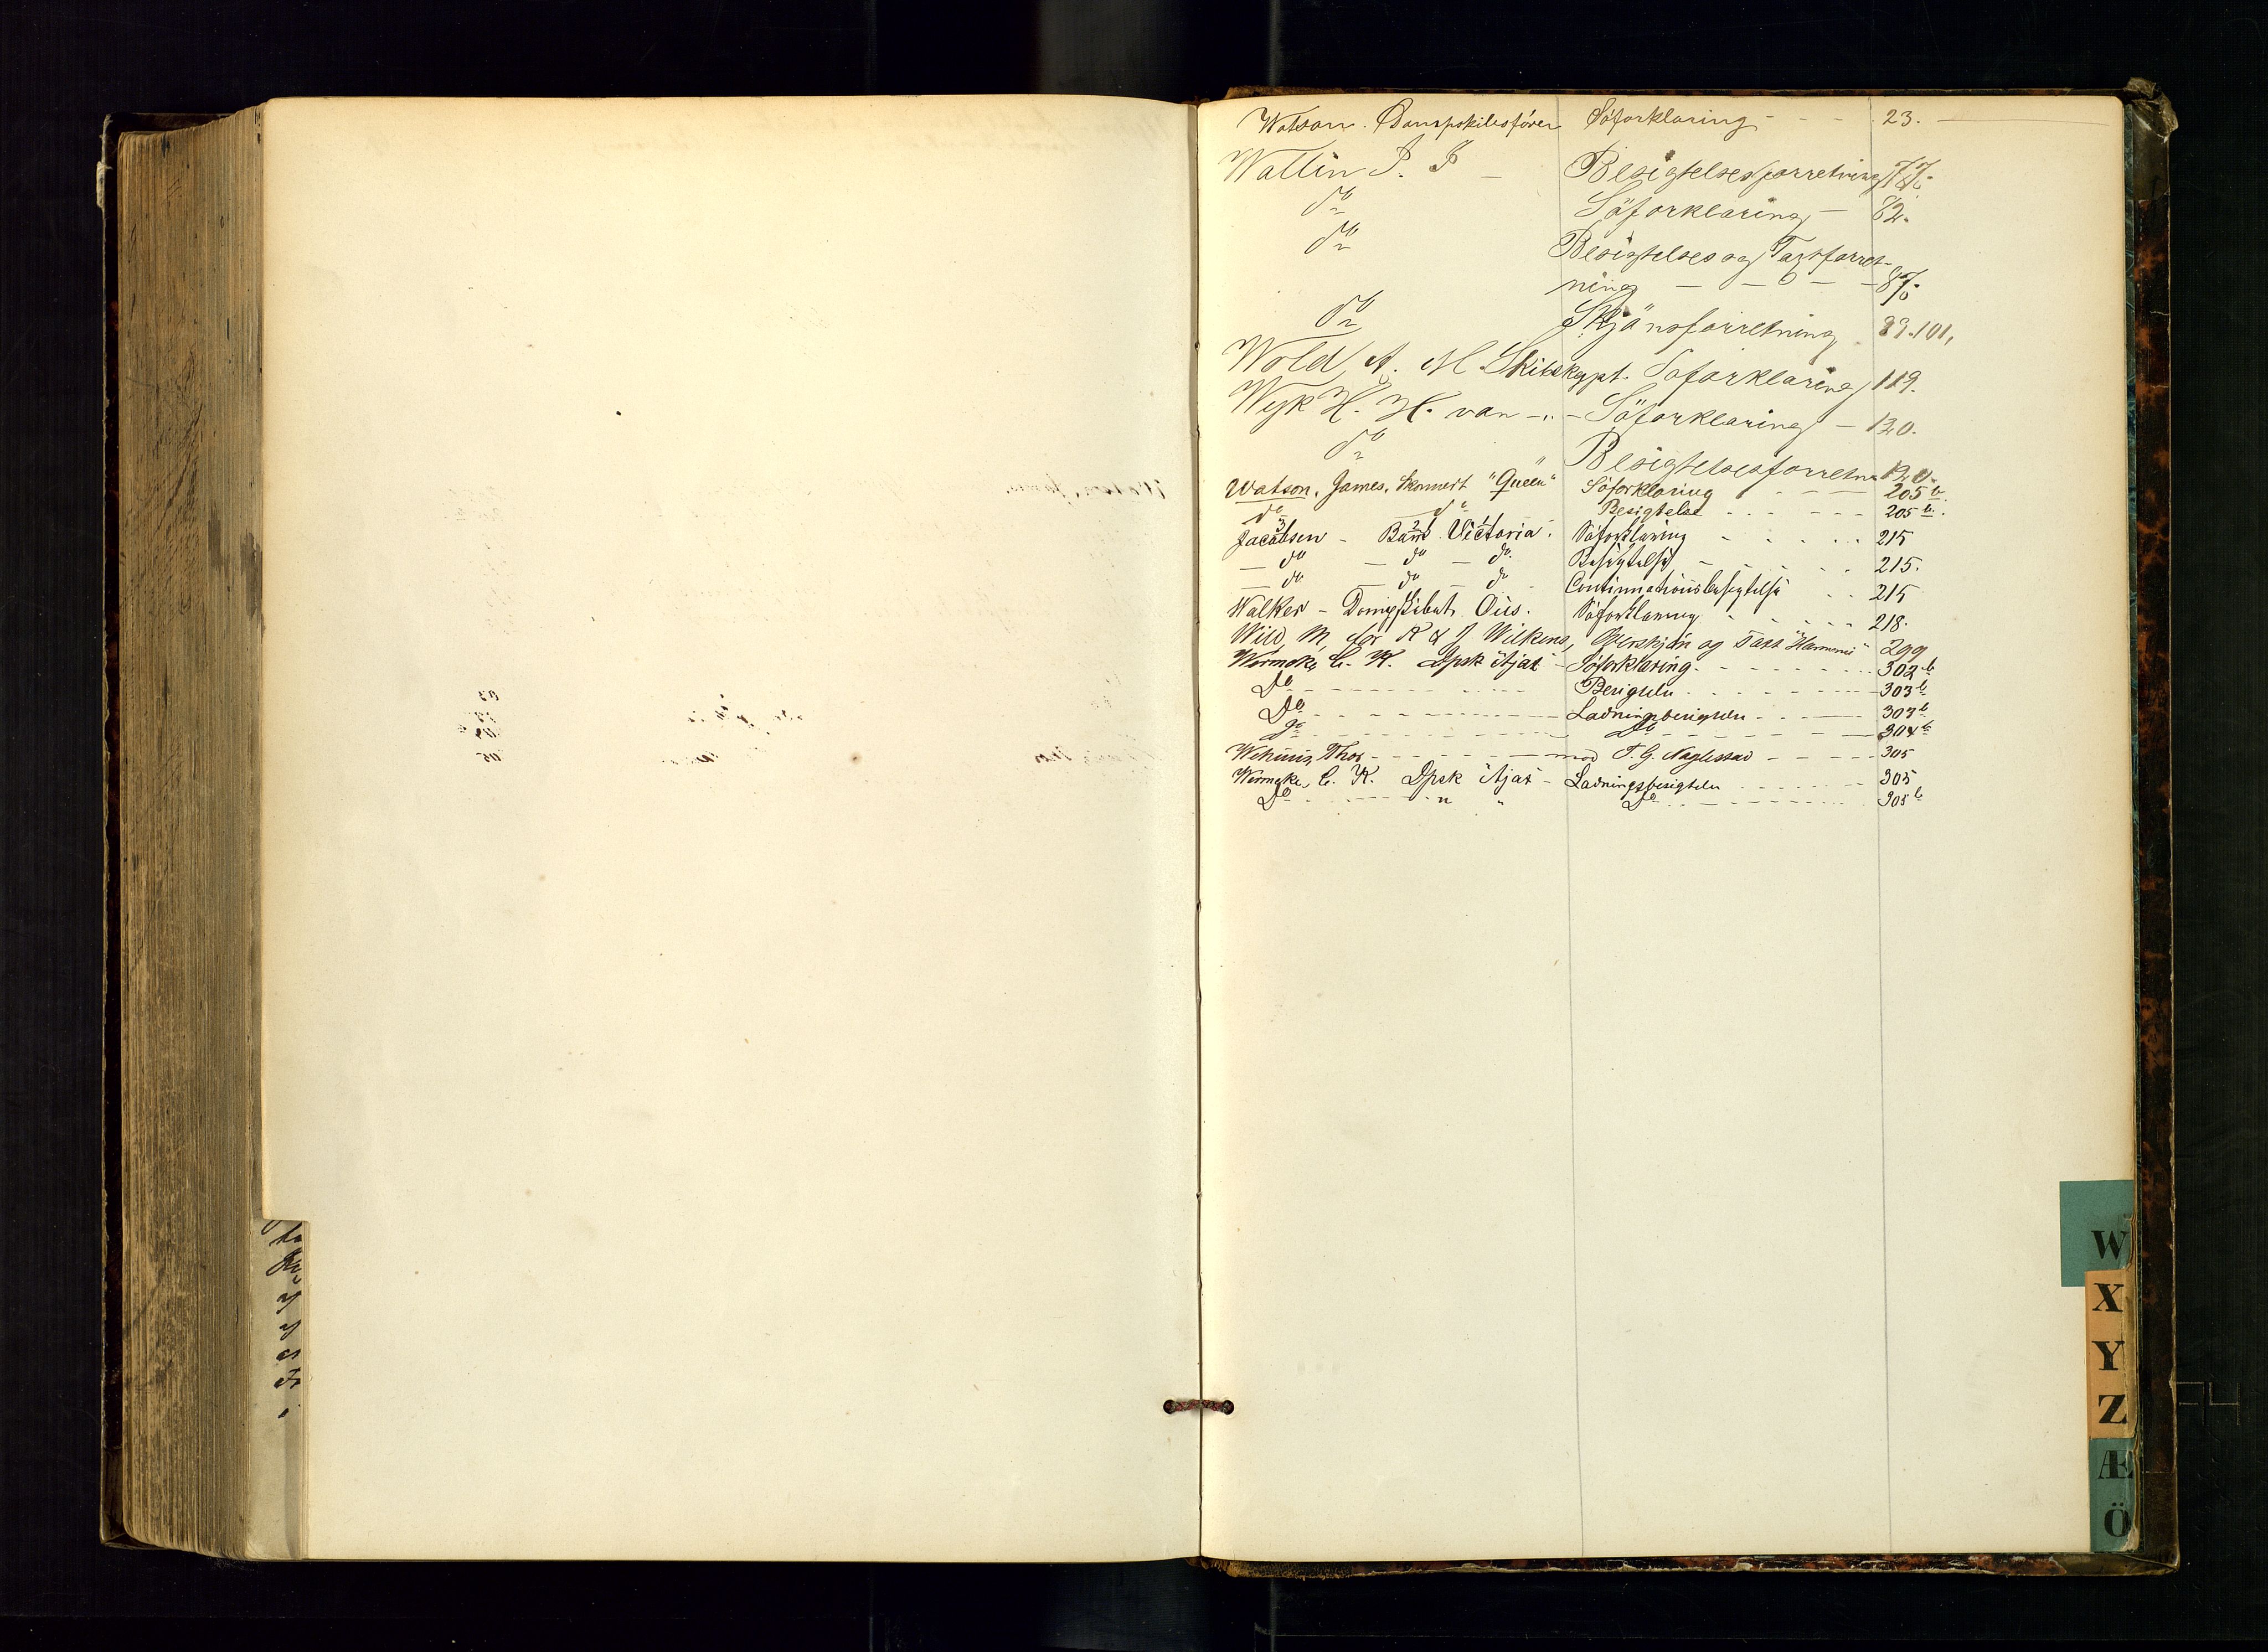 Watson. Dampskibsförer Söforklaring - - - 23.
Wallin P. P - Besigtelsesforretning 77.
do Söforklaring - 82.
do Besigtelses og Taxtforret-
ning - - - - 87.
do Skjönsforretning 89. 101.
Wold, A. M. Skibskapt. Söforklaring 119.
Wyk H. H. van - „ - Söforklaring - 120.
do Besigtelsesforretn. 120.
Watson, James, Skonnert "Queen" Söforklaring - - - 205 b.
do do Besigtelse - - - 205 b.
Jacobsen - Bark Victoria. Söforklaring - - - 215
- do - do - do. Besigtelse - - - 215.
- do - do - do - Continuationsbesigtelse - - 215
Walker - Dampskibet Ous. Söforklaring - - - 218.
Wild, M for R & J Wilkens, Overskjön og Taxt "Harmonie" 299
Wermeke C. K. Dpsk "Ajax" - Söforklaring - - - 302 b
Do - - - Besigtelse - - - 303 b
Do - - - Ladningsbesigtelse - - - 303 b
do - - - Do - - - 304 b
Wehuus, Thos - - - mod T. G. Naglestad - - - 305
Wermeke, C. K. Dpsk "Ajax" - Ladningsbesigtelse - - - 305
Do - - - " " Do - - - 305 b
W
X
Y
Z
Æ
Ö